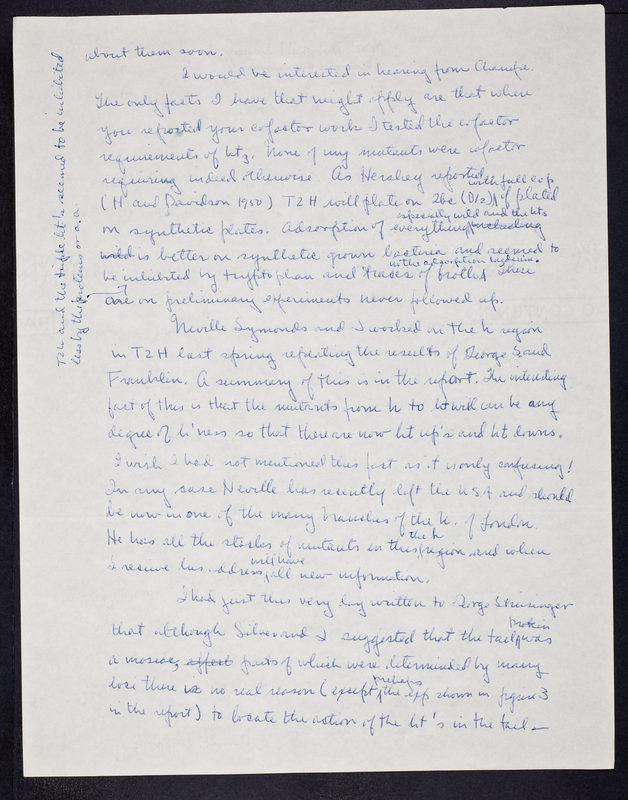 about them soon.
I would be interested in hearing from Champe.
The only facts I have that might apply are that when
you reported your cofactor work I tested the cofactor
requirements of ht3. None of my mutants were cofactor
requiring indeed otherwise. As Hershey reported
with full eop
(H and Davidson 1950) T2H will plate on 26c (B/2) if plated
especially wild and the hts
on synthetic plates. Adsorption of everything including
wild is better on synthetic grown bacteria and seemed to
in the adsorption medium.
be inhibited by tryptophan and traces of broth. These
are on preliminary experiments never followed up.
Neville Symonds and I worked on the h region
in T2H last spring repeating the results of George S and
Franklin. A summary of this is in the report. The interesting
fact of this is that the mutants from h to ht will can be any
degree of h'ness so that there are now ht up's and ht downs.
I wish I had not mentioned this fact as it is only confusing!
In any case Neville has recently left the USA and should
be now in one of the many branches of the U. of London.
the h
He has all the stocks of mutants in this region and when
will have
I receive his address, all new information.
I had just this very day written to George Streisinger
protein
that although Silver and I suggested that the tail was
a mosaic, effect parts of which were determined by many
perhaps
loci there is no real reason (except the exp shown in figure 3
in the report) to locate the action of the ht's in the tail —
T2H and the triple ht's seemed to be inhibited
less by the proteins or a.a.